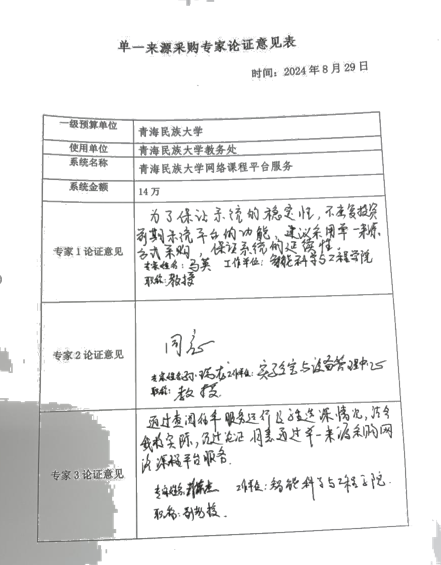 单一来源采购专家论证意见表
时间：2024年8月29日
一级预算单位 青海民族大学
使用单位 青海民族大学教务处
系统名称 青海民族大学网络课程平台服务
系统金额 14万
专家1论证意见
为了保证系统的稳定性，不重复投资
前期系统平台的功能，建议采用单一来源
方式采购，保证系统的延续性。
专家姓名：马英 工作单位：智能科学与工程学院
职称：教授
专家2论证意见
同意
专家姓名： 工作单位：实验室与设备管理中心
职称：教授
专家3论证意见
通过查阅 服务运行及 选课情况，结合
我校实际，经过论证 同意通过单一来源采购网
络课程平台服务.
专家姓名： 工作单位：智能科学与工程学院.
职称：副教授.